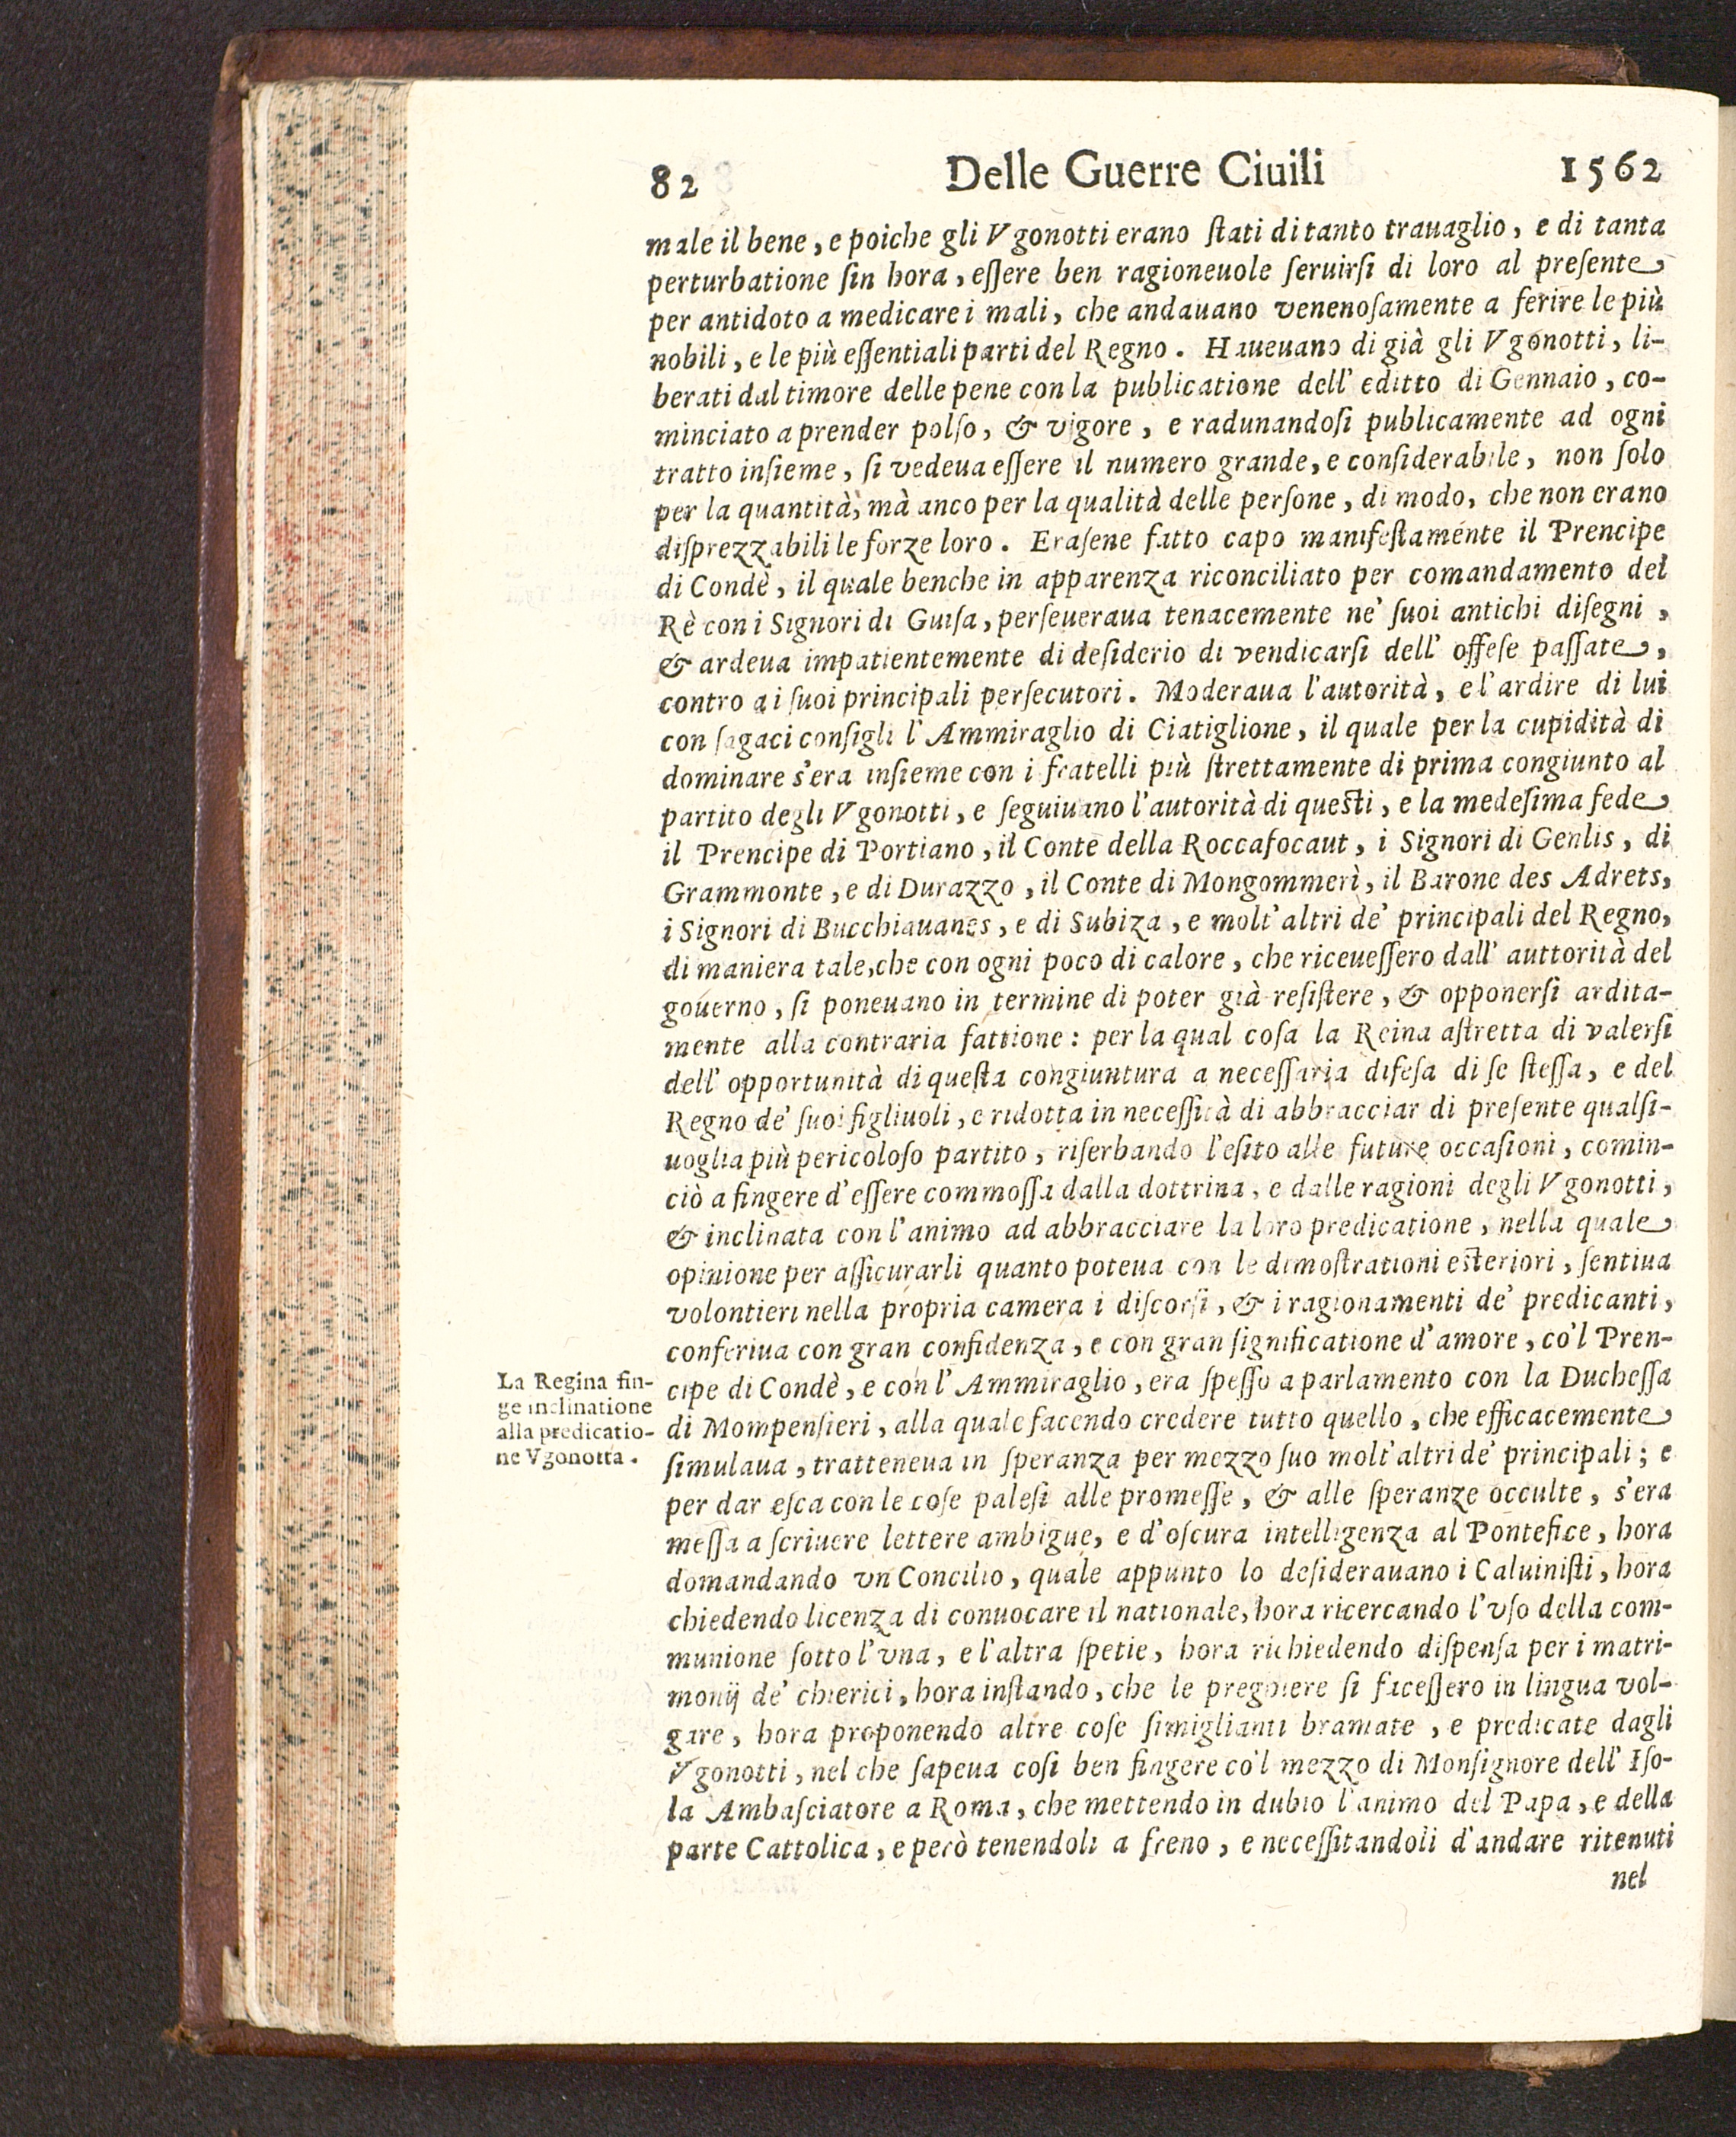 82 Delle Guerre Ciuili 1562
male il bene, e poiche gli Vgonotti erano ſtati di tanto trauaglio, e di tanta
perturbatione ſin hora, eſſere ben ragioneuole ſeruirſi di loro al preſente
per antidoto a medicare i mali, che andauano venenoſamente a ferire le più
nobili, e le più eſſentiali parti del Regno. Haueuano di già gli Vgonotti, li-
berati dal timore delle pene con la publicatione dell' editto di Gennaio, co-
minciato a prender polſo, & vigore, e radunandoſi publicamente ad ogni
tratto inſieme, ſi vedeua eſſere il numero grande, e conſiderabile, non ſolo
per la quantità, mà anco per la qualità delle perſone, di modo, che non erano
diſprezzabili le forze loro. Eraſene fatto capo manifeſtamente il Prencipe
di Condè, il quale benche in apparenza riconciliato per comandamento del
Rè con i Signori di Guiſa, perſeueraua tenacemente ne' ſuoi antichi diſegni,
& ardeua impatientemente di deſiderio di vendicarſi dell' offeſe paſſate,
contro a i ſuoi principali perſecutori. Moderaua l'autorità, e l'ardire di lui
con ſagaci conſigli l'Ammiraglio di Ciatiglione, il quale per la cupidità di
dominare s'era inſieme con i fratelli più ſtrettamente di prima congiunto al
partito degli Vgonotti, e ſeguiuano l'autorità di queſti, e la medeſima fede
il Prencipe di Portiano, il Conte della Roccafocaut, i Signori di Genlis, di
Grammonte, e di Durazzo, il Conte di Mongommerì, il Barone des Adrets,
i Signori di Bucchiauanes, e di Subiza, e molt'altri de' principali del Regno,
di maniera tale, che con ogni poco di calore, che riceueſſero dall' auttorità del
gouerno, ſi poneuano in termine di poter già reſiſtere, & opponerſi ardita-
mente alla contraria fattione: per la qual coſa la Reina aſtretta di valerſi
dell' opportunità di queſta congiuntura a neceſſaria difeſa di ſe ſteſſa, e del
Regno de' ſuoi figliuoli, e ridotta in neceſſità di abbracciar di preſente qualſi-
uoglia più pericoloſo partito, riſerbando l'eſito alle future occaſioni, comin-
ciò a fingere d'eſſere commoſſa dalla dottrina, e dalle ragioni degli Vgonotti,
& inclinata con l'animo ad abbracciare la loro predicatione, nella quale
opinione per aſſicurarli quanto poteua con le dimoſtrationi eſteriori, ſentiua
volontieri nella propria camera i diſcorſi, & i ragionamenti de' predicanti,
conferiua con gran confidenza, e con gran ſignificatione d'amore, co'l Pren-
cipe di Condè, e con l'Ammiraglio, era ſpeſſo a parlamento con la Ducheſſa
di Mompenſieri, alla quale facendo credere tutto quello, che efficacemente
ſimulaua, tratteneua in ſperanza per mezzo ſuo molt'altri de' principali; e
per dar eſca con le coſe paleſi alle promeſſe, & alle ſperanze occulte, s'era
meſſa a ſcriuere lettere ambigue, e d'oſcura intelligenza al Pontefice, hora
domandando vn Concilio, quale appunto lo deſiderauano i Caluiniſti, hora
chiedendo licenza di conuocare il nationale, hora ricercando l'vſo della com-
munione ſotto l'vna, e l'altra ſpetie, hora richiedendo diſpenſa per i matri-
monij de' chierici, hora inſtando, che le preghiere ſi faceſſero in lingua vol-
gare, hora proponendo altre coſe ſimiglianti bramate, e predicate dagli
Vgonotti, nel che ſapeua coſi ben fingere co'l mezzo di Monſignore dell' Iſo-
la Ambaſciatore a Roma, che mettendo in dubio l'animo del Papa, e della
parte Cattolica, e però tenendoli a freno, e neceſſitandoli d'andare ritenuti
nel
La Regina fin-
ge inclinatione
alla predicatio-
ne Vgonotta.